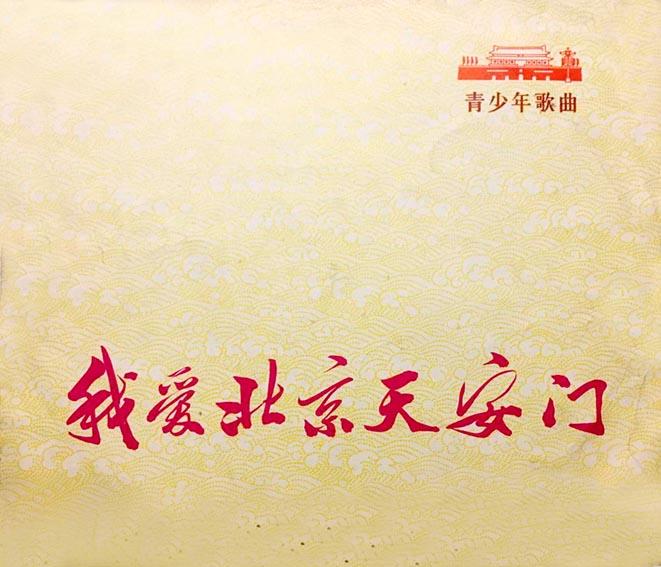 青少年歌曲
我爱北京天安门